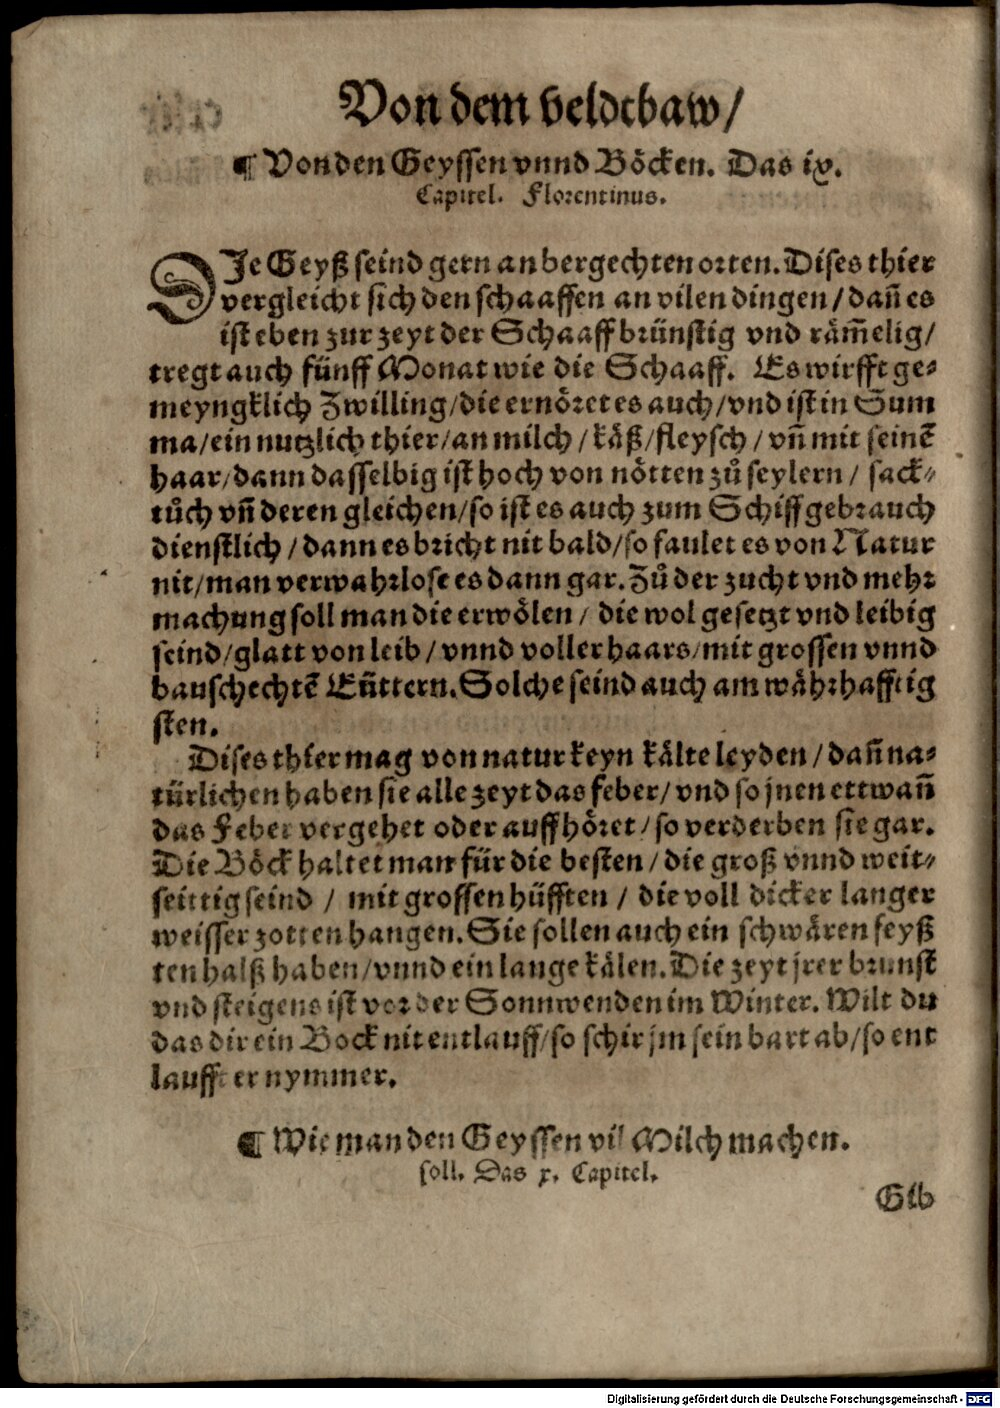 Von dem veldtbaw/
¶ Von den Geyssen vnnd Böcken. Das ix.
Capitel. Florentinus.
DIe Geyß seind gern an bergechten orten. Dises thier
vergleicht sich den schaaffen an vilen dingen/dañ es
ist eben zur zeyt der Schaaff brünstig vnd räm̃elig/
tregt auch fünff Monat wie die Schaaff. Es wirfft ge-
meyngklich Zwilling/die ernöret es auch/vnd ist in Sum
ma/ein nutzlich thier/an milch/käß/fleysch/vñ mit seinẽ
haar/dann dasselbig ist hoch von nötten zů seylern/ sack-
tůch vñ deren gleichen/so ist es auch zum Schiffgebrauch
dienstlich/dann es bricht nit bald/so faulet es von Natur
nit/man verwahrlose es dann gar. Zů der zucht vnd mehr
machung soll man die erwölen/ die wol gesetzt vnd leibig
seind/glatt von leib/vnnd voller haars/mit grossen vnnd
bauschechtẽ Eüttern. Solche seind auch am währhafftig
sten.
Dises thier mag von natur keyn kälte leyden/dañ na-
türlichen haben sie alle zeyt das feber/vnd so jnen ettwañ
das Feber vergehet oder auffhöret/so verderben sie gar.
Die Böck haltet man für die besten/die groß vnnd weit-
seittig seind / mit grossen hüfften / die voll dicker langer
weisser zotten hangen. Sie sollen auch ein schwären feyß
ten halß haben/vnnd ein lange kälen. Die zeyt jrer brunst
vnd steigens ist vor der Sonnwenden im Winter. Wilt du
das dir ein Bock nit entlauff/so schir jm sein bart ab/so ent
laufft er nymmer.
¶ Wie man den Geyssen vil Milch machen.
soll. Das x. Capitel.
Gib
Digitalisierung gefördert durch die Deutsche Forschungsgemeinschaft - DFG